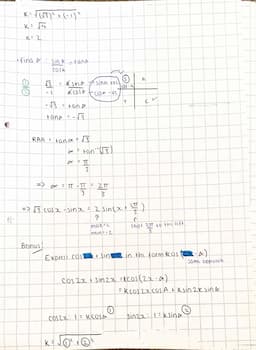 K = √(√3)² + (-1)²
K = √4
K = 2
• Find α sin α / cos α = tan α
① √3 = K sin α → sin α +ve
② -1 K cos α → cos α -ve
-√3 = tan α
tan α = -√3
RAA = tan α = √3
α = tan⁻¹(√3)
α = π/3
⇒ α = π - π/3 = 2π/3
⇒ √3 cos x - sin x = 2 sin(x + 2π/3)
max = 2
min = -2
shift 2π/3 to the left
Bonus!
Express cos + sin in the form K cos( - α)
same approach
cos 2x + sin 2x = K cos(2x - α)
= K cos 2x cos α + K sin 2x sin α
cos 2x: 1 = K cos α ① sin 2x: 1 = K sin α ②
K = √①² + ②²